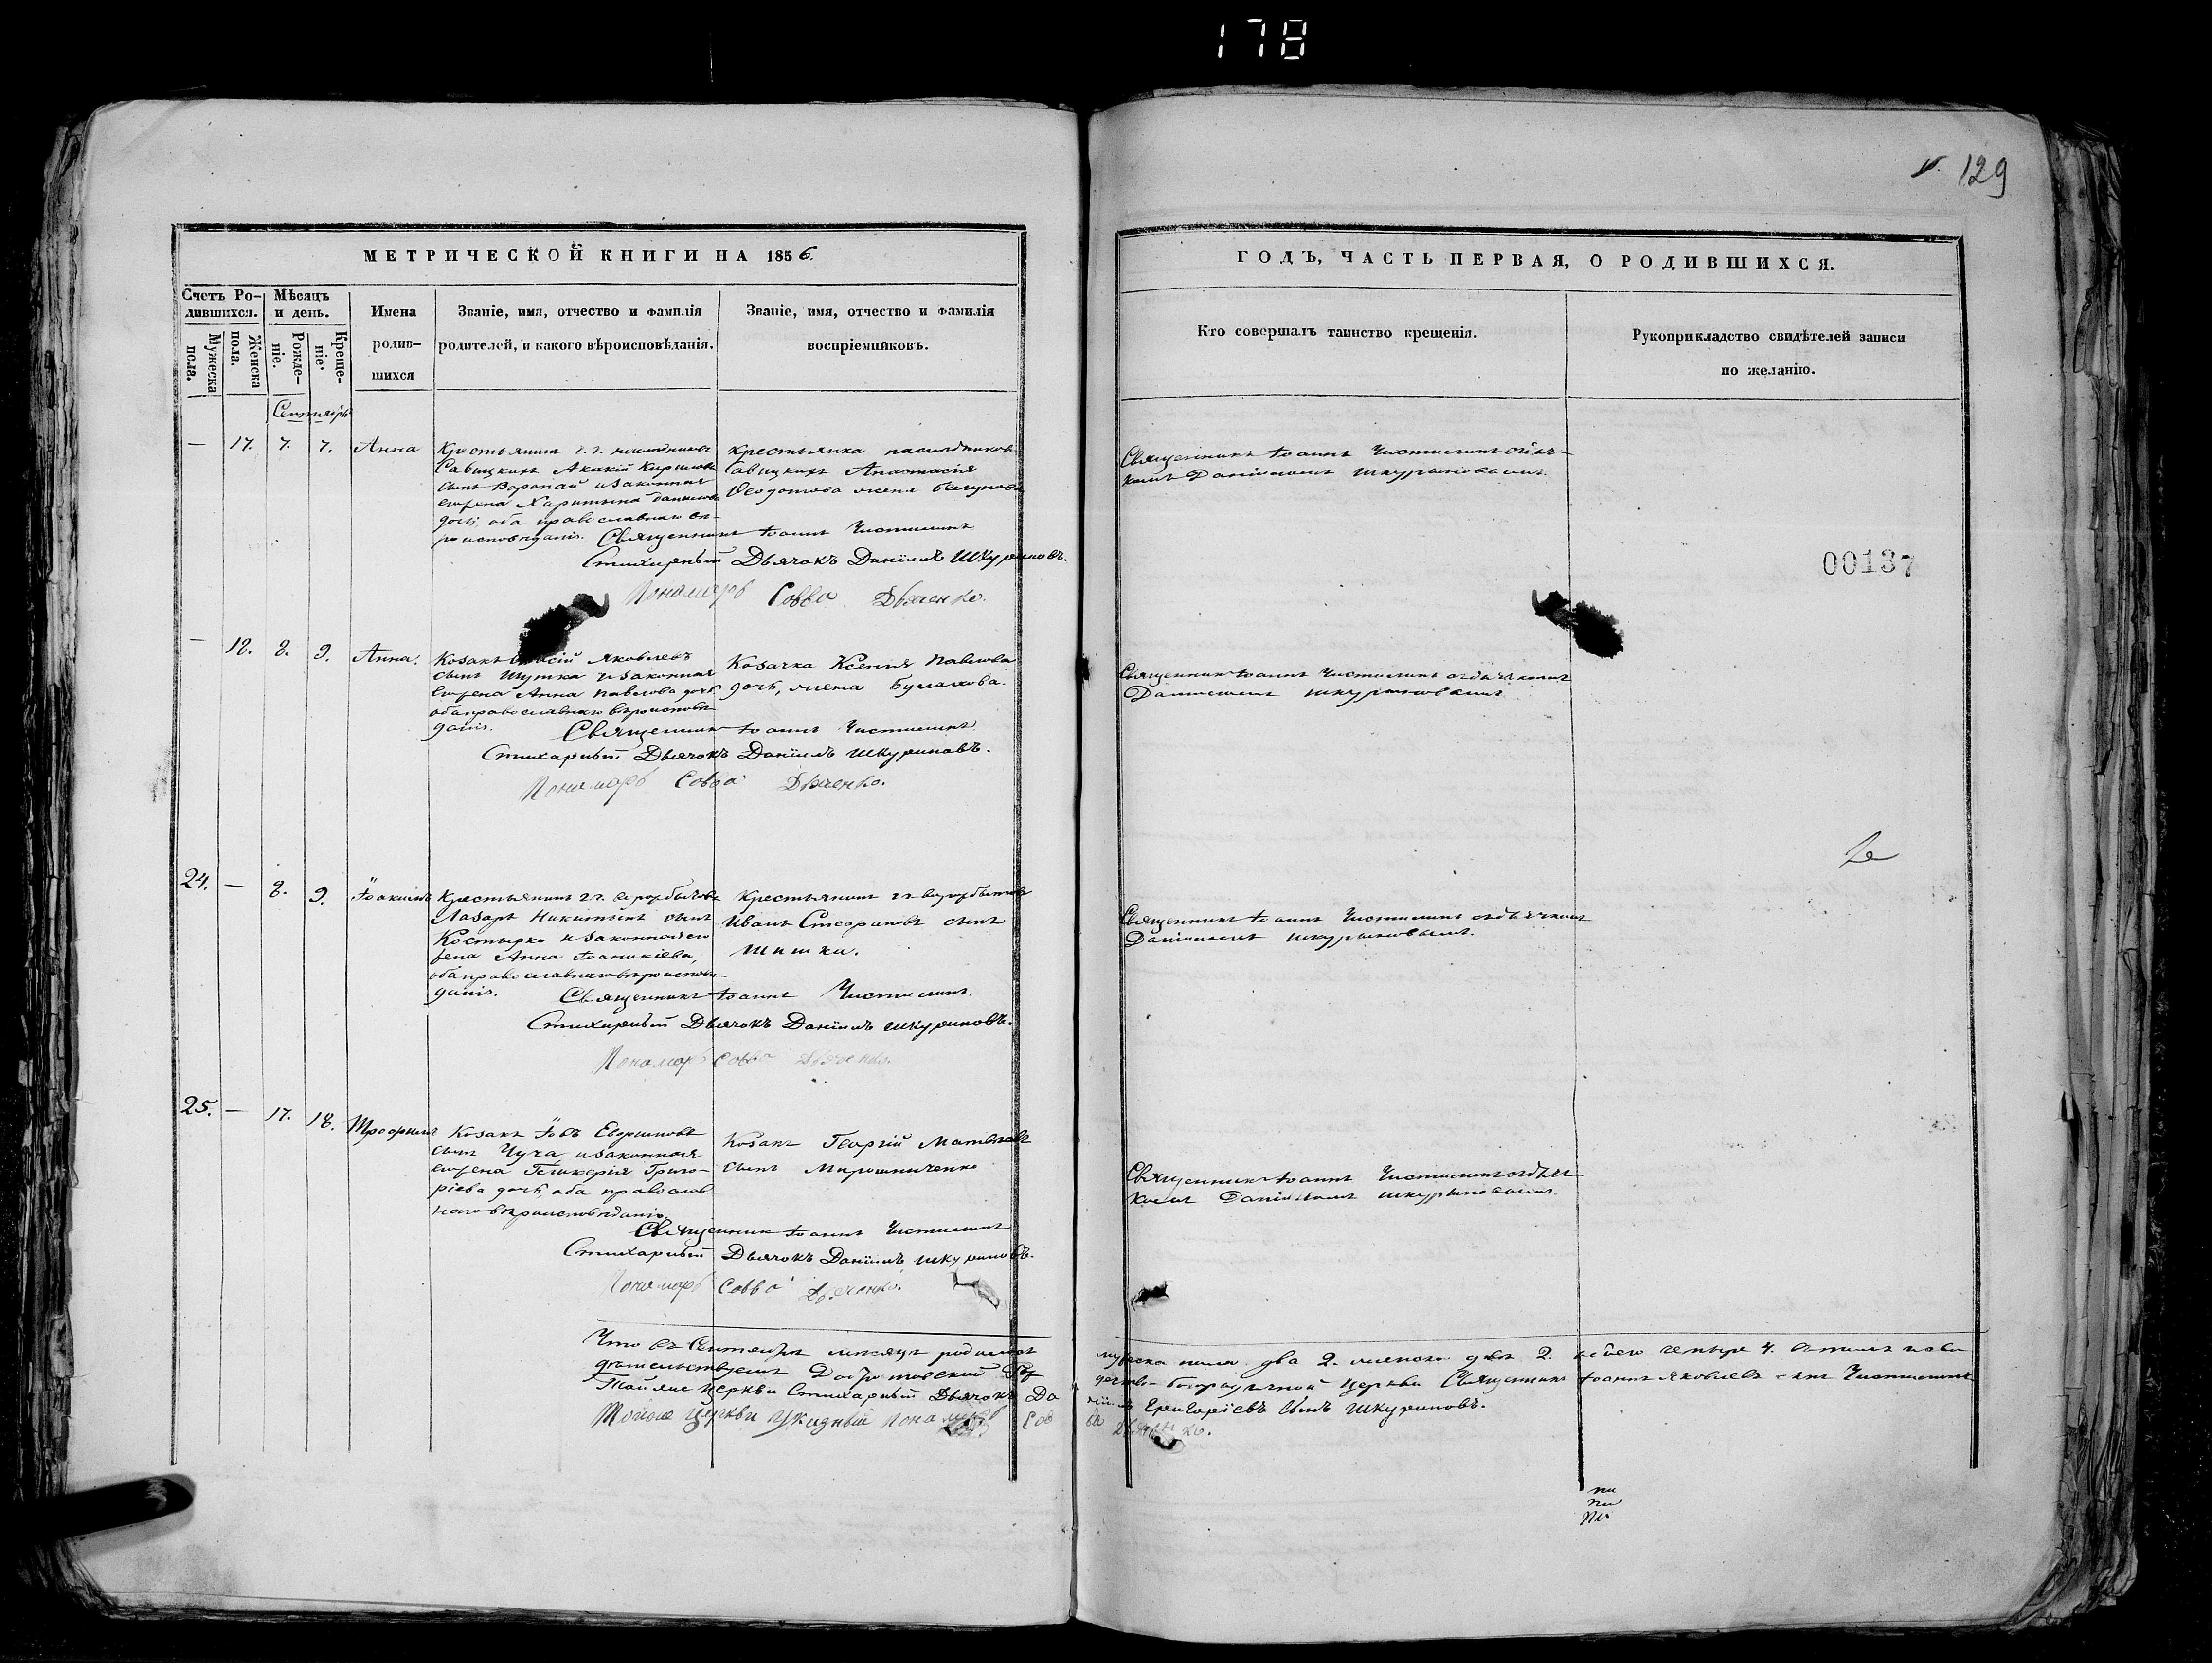 178
129
МЕТРИЧЕСКОЙ КНИГИ НА 1856.
Счетъ Ро-
дившихся.
Мужеска
пола.
Женска
пола.
Мѣсяцъ
и день.
Рожде-
ніе.
Креще-
ніе.
Имена
родив-
шихся
Званіе, имя, отчество и фамилія
родителей, и какого вѣроисповѣданія.
Званіе, имя, отчество и фамилія
воспріемниковъ.
Сентябрь
— 17. 7. 7. Анна
Крестьянинъ г. г. наслѣдниковъ
Савицкихъ Акакій Кириловъ
сынъ Воропай и законная
его жена Харитына Данилова
дочь, оба православнаго вѣ-
роисповѣданія.
крестьянка наслѣдниковъ
Савицкихъ Анастасія
Ѳедотова жена
Священникъ Іоаннъ Чистилинъ
Стихарный Дьячокъ Даніилъ Шкуриновъ.
Пономарь Савва Дьяченко.
— 18. 8. 9. Анна.
Козакъ Яковлевъ
сынъ Шутка и законная
его жена Анна Павлова дочь
оба православнаго вѣроисповѣ-
данія.
Козачка Ксенія Павлова
дочь, жена Булахова.
Священникъ Іоаннъ Чистилинъ
Стихарный Дьячокъ Даніилъ Шкуриновъ.
Пономарь Савва Дьяченко.
24. — 8. 9. Іоакимъ
Крестьянинъ г. г.
Лазарь Никитинъ сынъ
Костырко и законная его
жена Анна Іоаникіева,
оба православнаго вѣроисповѣ-
данія.
Крестьянинъ г. г.
Иванъ Стефановъ сынъ
Шишка.
Священникъ Іоаннъ Чистилинъ.
Стихарный Дьячокъ Даніилъ Шкуриновъ.
Пономарь Савва Дьяченко.
25. — 17. 18. Трофимъ
Козакъ Іовъ Евфимовъ
сынъ Чуча, и законная
его жена Гликерія Григо-
ріева дочь, оба православ-
наго вѣроисповѣданія.
Козакъ Георгій Матвѣевъ
сынъ Мирошниченко
Священникъ Іоаннъ Чистилинъ
Стихарный Дьячокъ Даніилъ Шкуриновъ.
Пономарь Савва Дьяченко.
Что въ Сентябрѣ мѣсяцѣ родилось
Тойже церкви Стихарный Дьячокъ Да
Тойже церкви Указный пономарь Сав
ГОДЪ, ЧАСТЬ ПЕРВАЯ, О РОДИВШИХСЯ.
Кто совершалъ таинство крещенія.
Рукоприкладство свидѣтелей записи
по желанію.
Священникъ Іоаннъ Чистилинъ съ дьяч-
комъ Даніиломъ Шкуриновымъ.
00137
Священникъ Іоаннъ Чистилинъ съ дьячкомъ
Даніиломъ Шкуриновымъ.
Священникъ Іоаннъ Чистилинъ съ дьячкомъ
Даніиломъ Шкуриновымъ.
Священникъ Іоаннъ Чистилинъ съ дьяч
комъ Даніиломъ Шкуриновымъ.
мужеска пола два 2. женска двѣ 2. всего четыре 4.
церкви Священникъ Іоаннъ Яковлевъ Чистилинъ
ніилъ Григоріевъ сынъ Шкуриновъ.
ва Дьяченко.